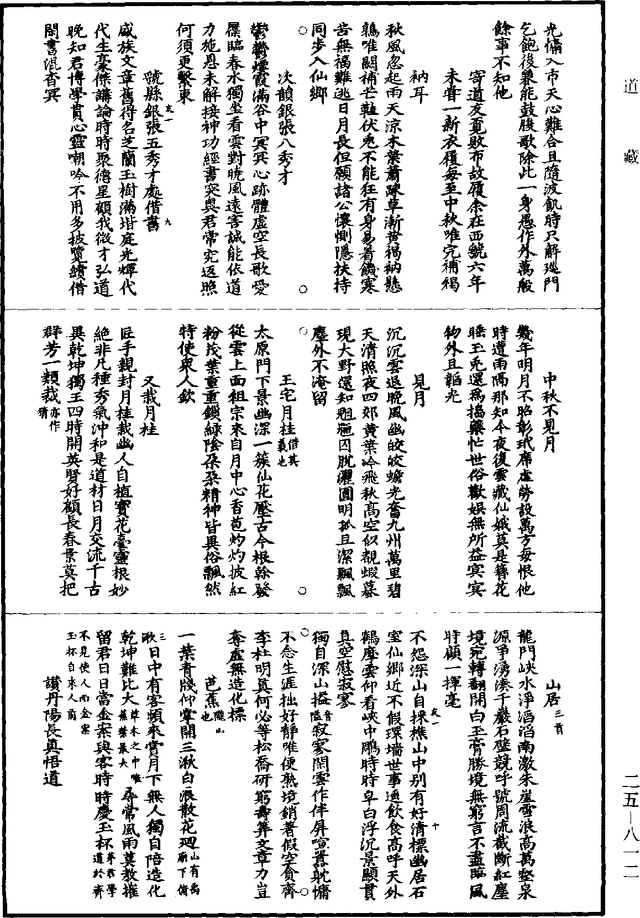 道藏
光慵入市天心難合且隨波飢時只解巡門
乞飽後兼能鼓腹歌除此一身愚作外萬般
餘事不知他
寄道友覓敗布故履余在西虢六年
未嘗一新衣履每至中秋唯完補褐
衲耳
秋風忽起雨天涼木葉蕭踈草漸黃褐衲懸
鶉唯闕補芒鞋伏兎不能狂有身易着饑寒
苦無禍難逃日月長但願諸公懷惻隱扶持
同步入仙鄉
次韻銀張八秀才
鬱鬱煙霞滿谷中冥冥心跡體虛空長歌愛
屧臨春水獨坐看雲對晚風遠害誠能依道
力施恩未解接神功經書突奧君常究返照
何須更繫東
虢縣銀張五秀才處借書
咸族文章舊得名芝蘭玉樹滿堦庭光輝代
代生豪傑講論時時聚德星顧我微才弘道
晚知君博學貫心靈嘲吟不用多披覽續借
閑書混杳冥
中秋不見月
幾年明月不照彰玳席虛勞設萬方每恨他
時遭雨隔那知今夜復雲藏仙娥莫是簪花
睡玉兎還為搗藥忙世俗歡娛無所益寞寞
物外且韜光
見月
沉沉雲退晚風幽皎皎蟾光奮九州萬里碧
天清照夜四郊黃葉冷飛秋高空似覩蝦蟇
現大野還知魍魎囚脫灑圓明孤且潔飄飄
塵外不淹留
王宅月桂借其義也
太原門下景幽深一簇仙花壓古今根榦發
從雲上面祖宗來自月中心香苞灼灼披紅
粉茂葉重重鎖綠陰朶朶精神皆異俗飄然
特使衆人欽
又栽月桂
匠手親封月桂栽幽人自植寶花臺靈根妙
絕非凡種秀氣沖和是道材日月交流千古
異乾坤獨王四時開英賢好顧長春景莫把
群芳一類裁亦作猜
山居三首
龍門峽水淨滔滔南激朱崖雪浪高萬壑泉
源爭湧湊千巖石壁競呼號周流截斷紅塵
境宛轉翻開白玉膏勝境無窮言不盡臨風
時顧一揮毫
不怨深山自採樵山中別有好清標幽居石
室仙鄉近不假環墻世事遙飲食高呼天外
鶴塵雲仰看峽中鵰時時皁白浮沉景顯貫
真空慰寂寥
獨自深山搤寂寥閑雲作伴屏喧囂躭慵
不念生涯拙好靜唯便熟境銷著假空賁齊
李杜明真何必等松喬研窮壽筭文章力豈
奪虛無造化標
芭蕉隴山也
一葉青牋仰掌開三湫白浪散花迴山有禹廟下三湫
日中有客頻來賞月下無人獨自陪造化
乾坤難比大草木之中唯蕉葉最大尋常風雨莫教摧
留君日日當金案與客時時慶玉杯茅君學道於齊不見使人而金案玉杯自來人前
讚丹陽長真悟道
二五—八一二